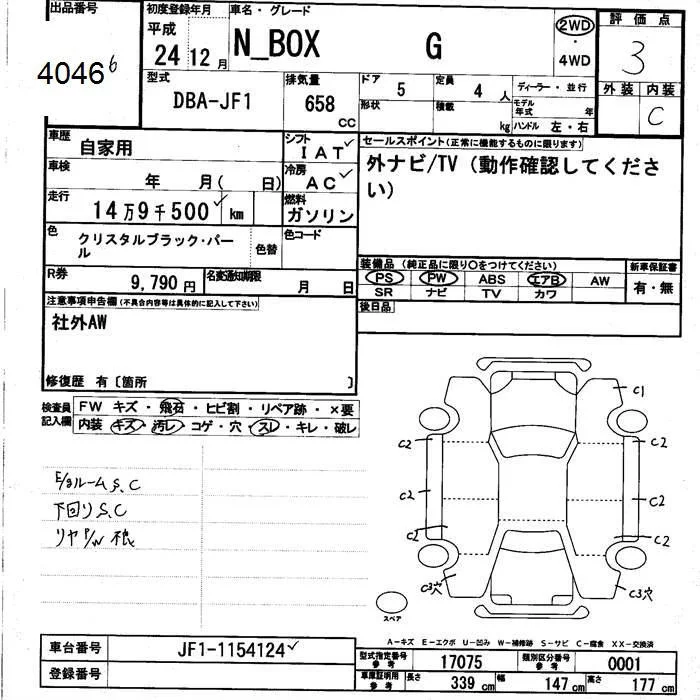 出品番号
4046 6
初度登録年月 平成 24 12 月
車名・グレード N_BOX G
2WD ・ 4WD
評価点 3
外装 内装 C
型式 DBA-JF1
排気量 658 CC
ドア 5 定員 4 人
形状 積載 kg
ディーラー・並行
モデル年式 年
ハンドル 左・右
車歴 自家用
シフト IAT
車検 年 月( 日)
冷房 AC
走行 14万9千500 km
燃料 ガソリン
色 クリスタルブラック・パール 色替 色コード
R券 9,790円 名変通知期限 月 日
セールスポイント(正常に機能するものに限ります)
外ナビ/TV(動作確認してください)
装備品(純正品に限り○をつけてください) 新車保証書
PS PW ABS エアB AW 有・無
SR ナビ TV カワ
後日品
注意事項申告欄(不具合内容等は具体的に記入して下さい)
社外AW
修復歴 有〔箇所 〕
検査員記入欄
FW キズ・飛石・ヒビ割・リペア跡・×要
内装 キズ・汚レ・コゲ・穴・スレ・キレ・破レ
E/gルーム S、C
下回り S、C
リヤ P/W
C1
C2 C2
C2 C2
C2 C2
C3穴 C3穴
スペア
A-キズ E-エクボ U-凹み W-補修跡 S-サビ C-腐食 XX-交換済
車台番号 JF1-1154124
登録番号
型式指定番号参考 17075 類別区分番号参考 0001
車庫証明用参考 長さ 339 cm 幅 147 cm 高さ 177 cm